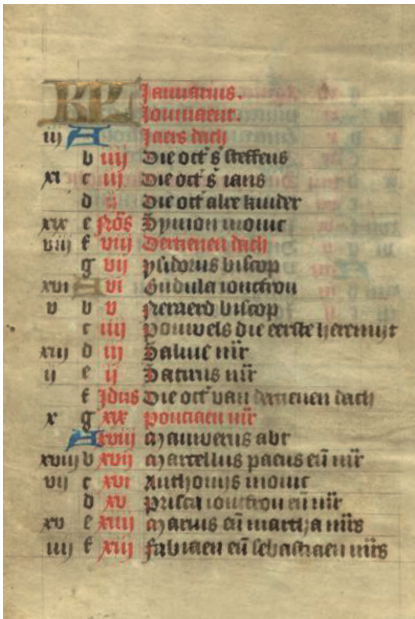 KL Januarius.
Loumaent.
iij A Jaers dach
b iiij Die oct s steffens
xi c iij Die oct s ians
d ij Die oct alre kinder
xix e Nos Symon monic
viij f viij Dertienen dach
g vij ysidorus biscop
xvi A vi Gudula ioncfrou
v b v biscop
c iiij pouwels die eerste heremijt
xiij d iij mr
ij e ij Satirus mr
f Idus Die oct van dertienen dach
x g xix pontiaen mr
A xviij abt
xviij b xvij Marcellus paeus en mr
vij c xvi Anthonijs monic
d xv prisca ioncfrou en mr
xv e xiiij Marius en martha mrs
iiij f xiij fabiaen en sebastiaen mrs